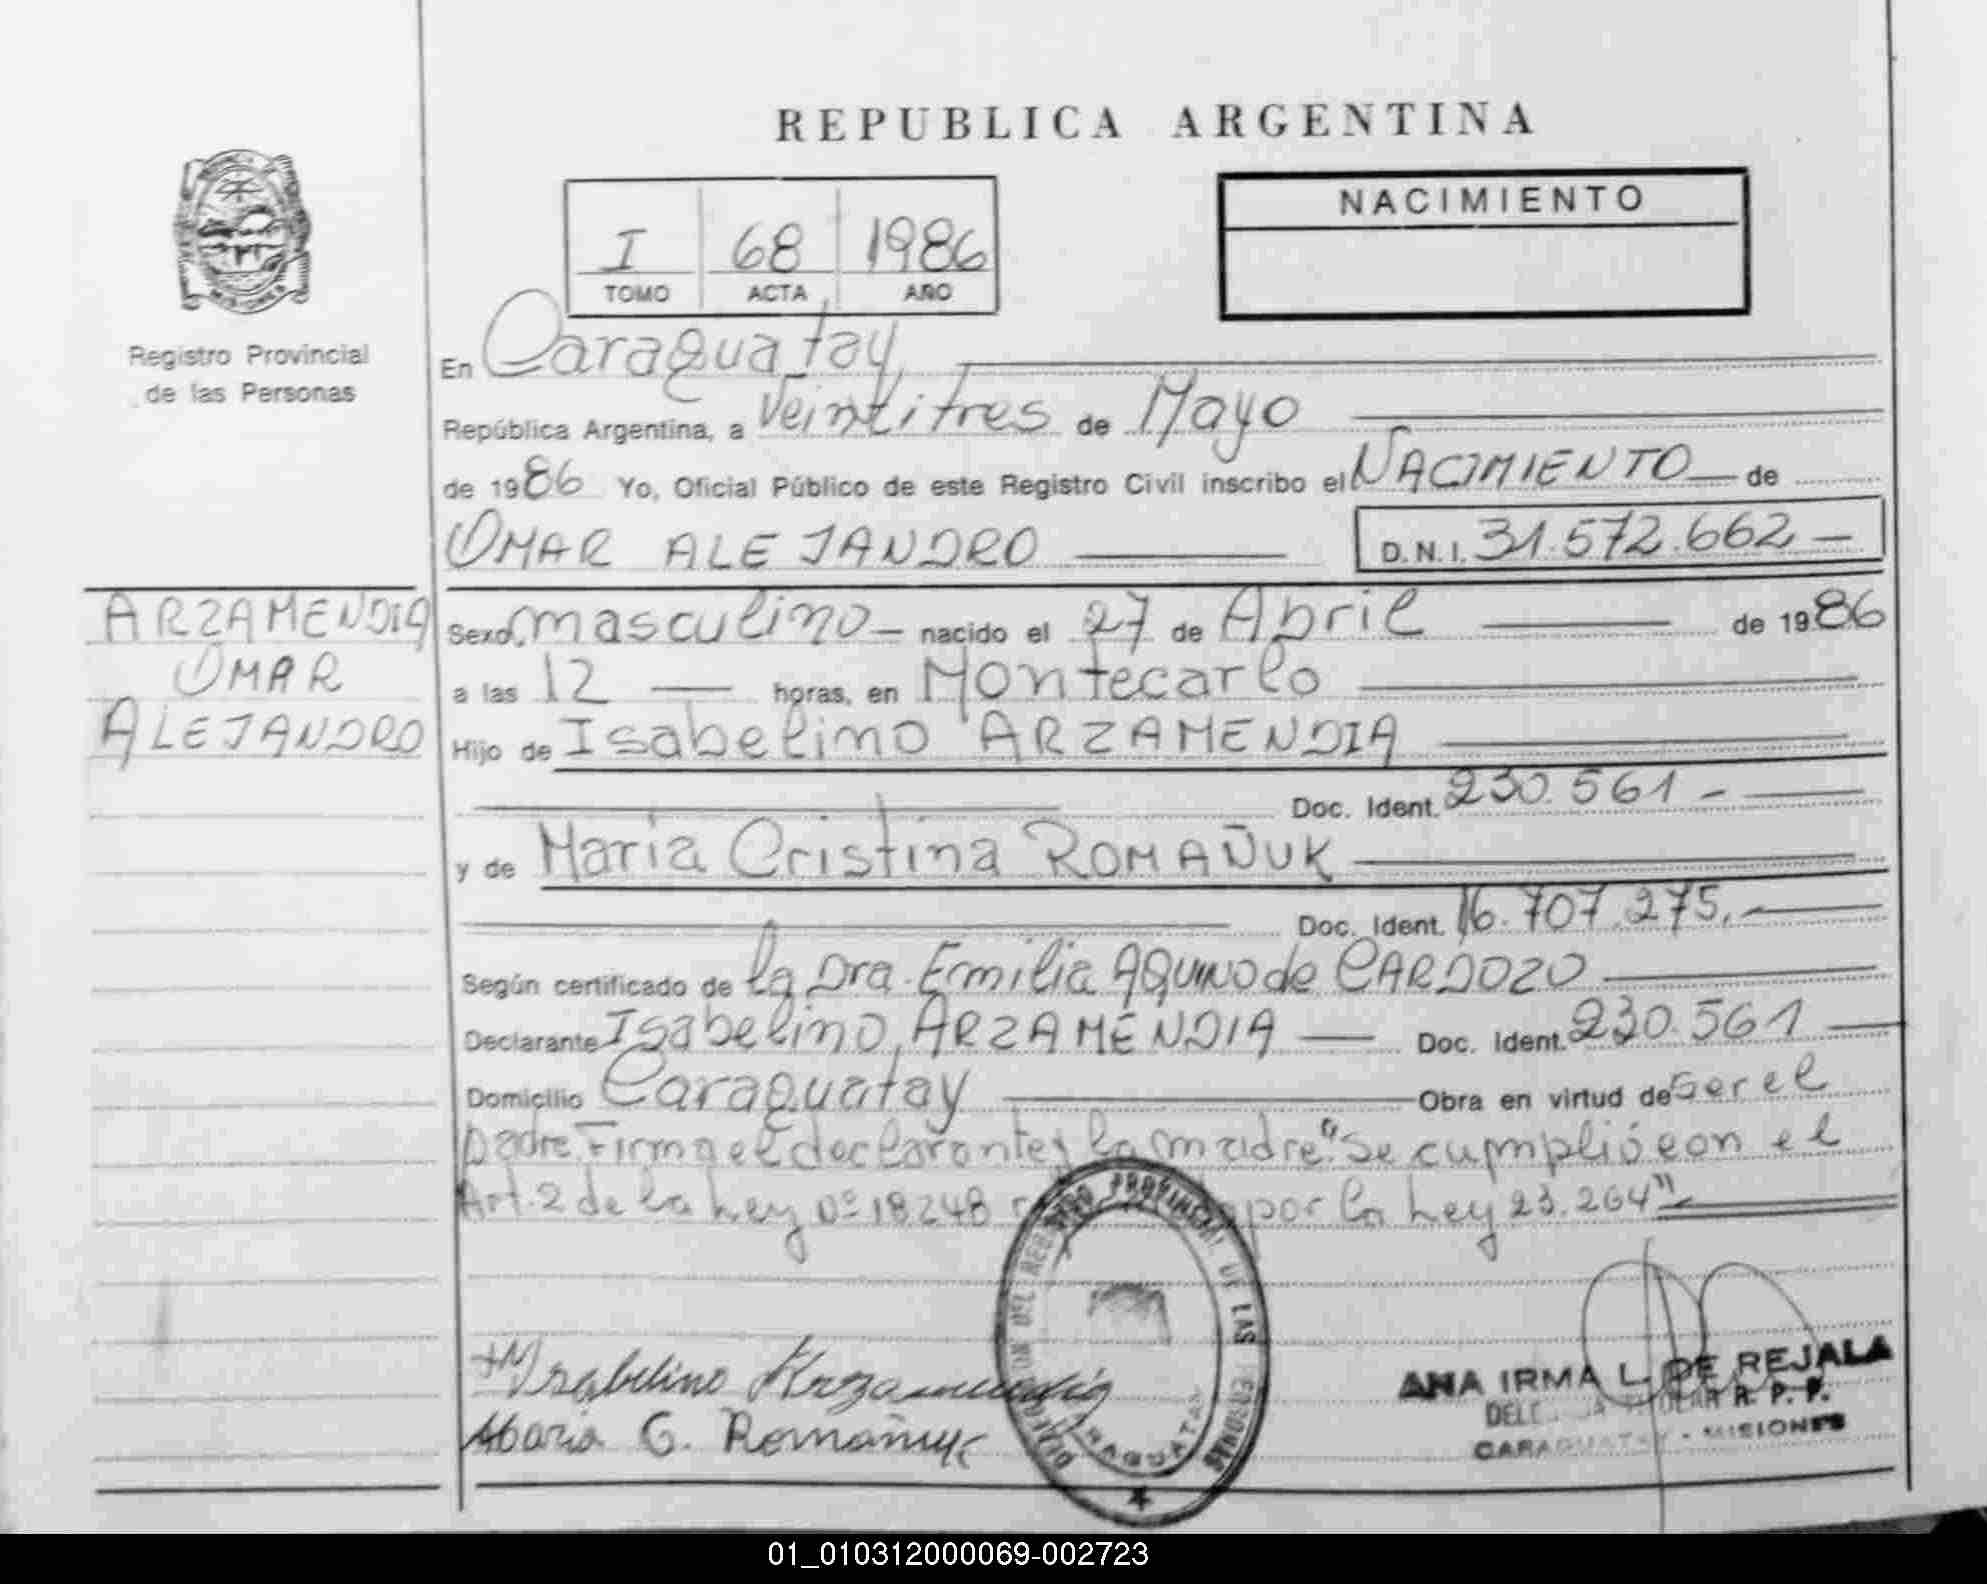 REPUBLICA ARGENTINA
NACIMIENTO
I 68 1986
TOMO ACTA AÑO
Registro Provincial
de las Personas
En Caraguatay
República Argentina, a Veintitres de Mayo
de 1986 Yo, Oficial Público de este Registro Civil inscribo el NACIMIENTO de
OMAR ALEJANDRO D.N.I. 31.572.662
ARZAMENDIA
OMAR
ALEJANDRO
Sexo masculino nacido el 27 de Abril de 1986
a las 12 horas, en Montecarlo
Hijo de Isabelino ARZAMENDIA
Doc. Ident. 230.561
y de María Cristina ROMAÑUK
Doc. Ident. 16.707.275.
Según certificado de la Dra. Ermilia AQUINO de CARDOZO
Declarante Isabelino ARZAMENDIA Doc. Ident. 230.561
Domicilio Caraguatay Obra en virtud de ser el
padre. Firma el declarante y la madre. "Se cumplió con el
Art. 2 de la Ley Nº 18248 por la Ley 23.264"
Isabelino Arzamendia
Maria C. Romañuk
REGISTRO PROVINCIAL DE LAS PERSONAS
CARAGUATAY
ANA IRMA L. DE REJALA
TITULAR R. P. P.
CARAGUATAY - MISIONES
01_010312000069-002723